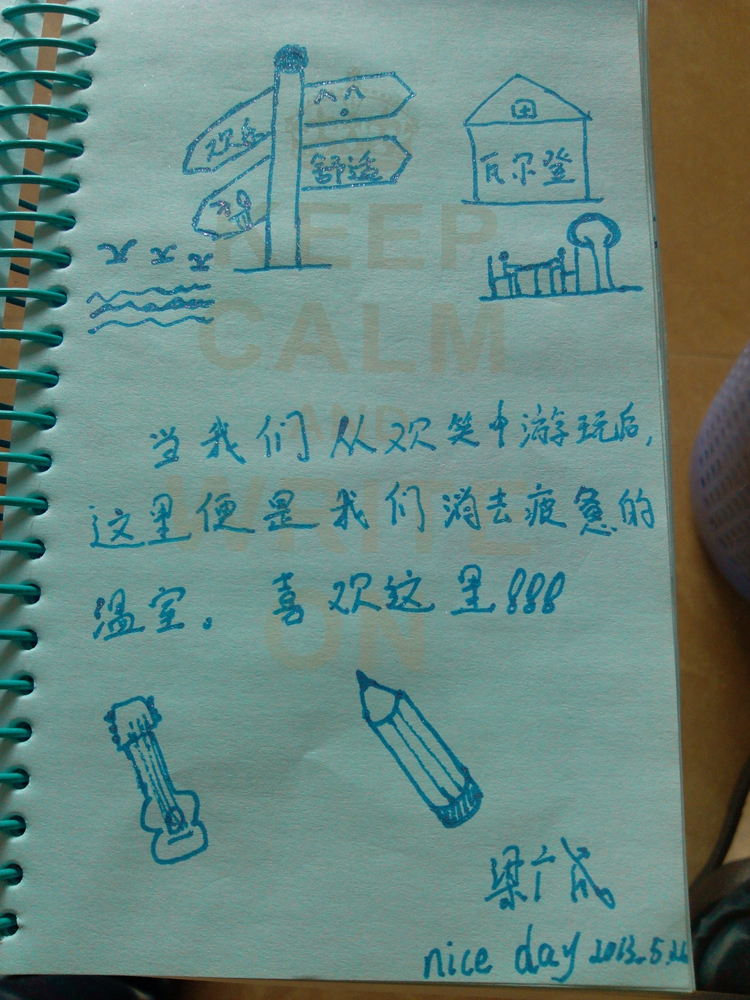 欢乐
舒适
瓦尔登
KEEP
CALM
AND
WRITE
ON
当我们从欢笑中游玩后,
这里便是我们消去疲惫的
温室。喜欢这里!!!
梁广成
nice day 2013.5.26